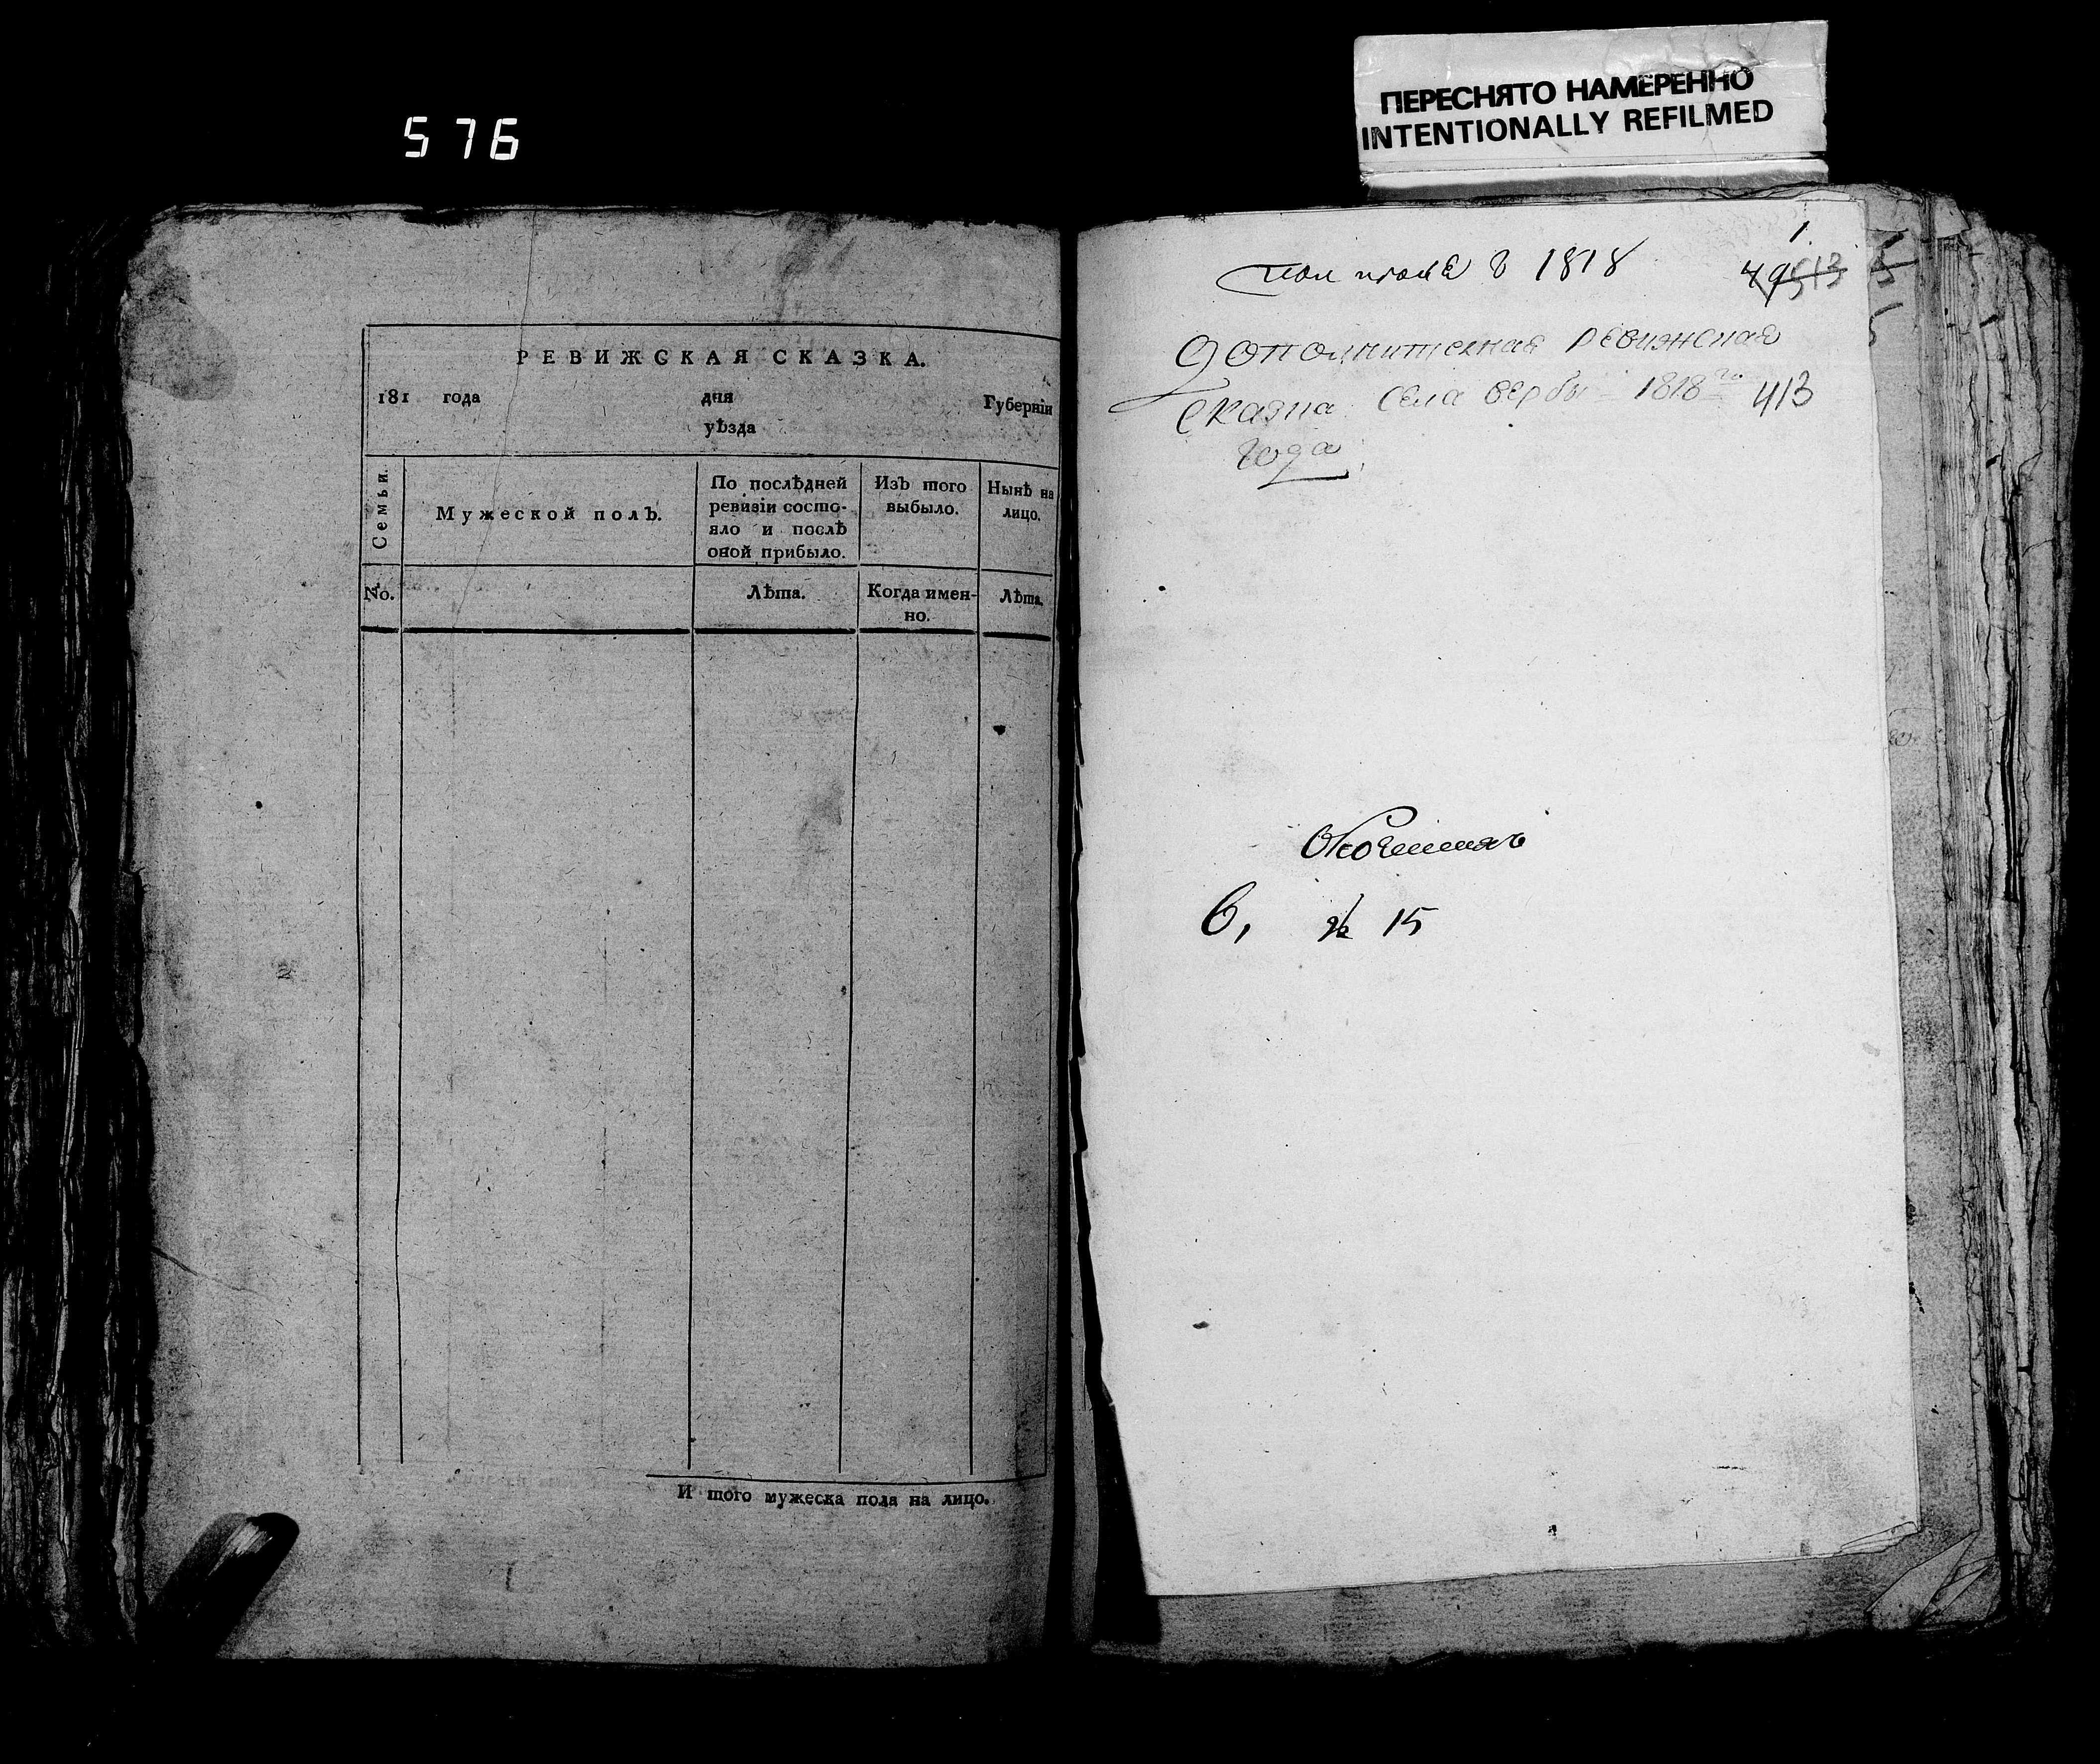 576
ПЕРЕСНЯТО НАМЕРЕННО
INTENTIONALLY REFILMED
РЕВИЖСКАЯ СКАЗКА.
181 года дня Губерніи
уѣзда
Семьи.
Мужеской полъ.
По послѣдней
ревизіи состо-
яло и послѣ
оной прибыло.
Изъ того
выбыло.
Нынѣ на
лицо.
No.
Лѣта.
Когда имен-
но.
Лѣта.
И того мужеска пола на лицо.
1.
1818
513
дополнительная ревижская
сказка села вербы 1818го 413
года
6, № 15